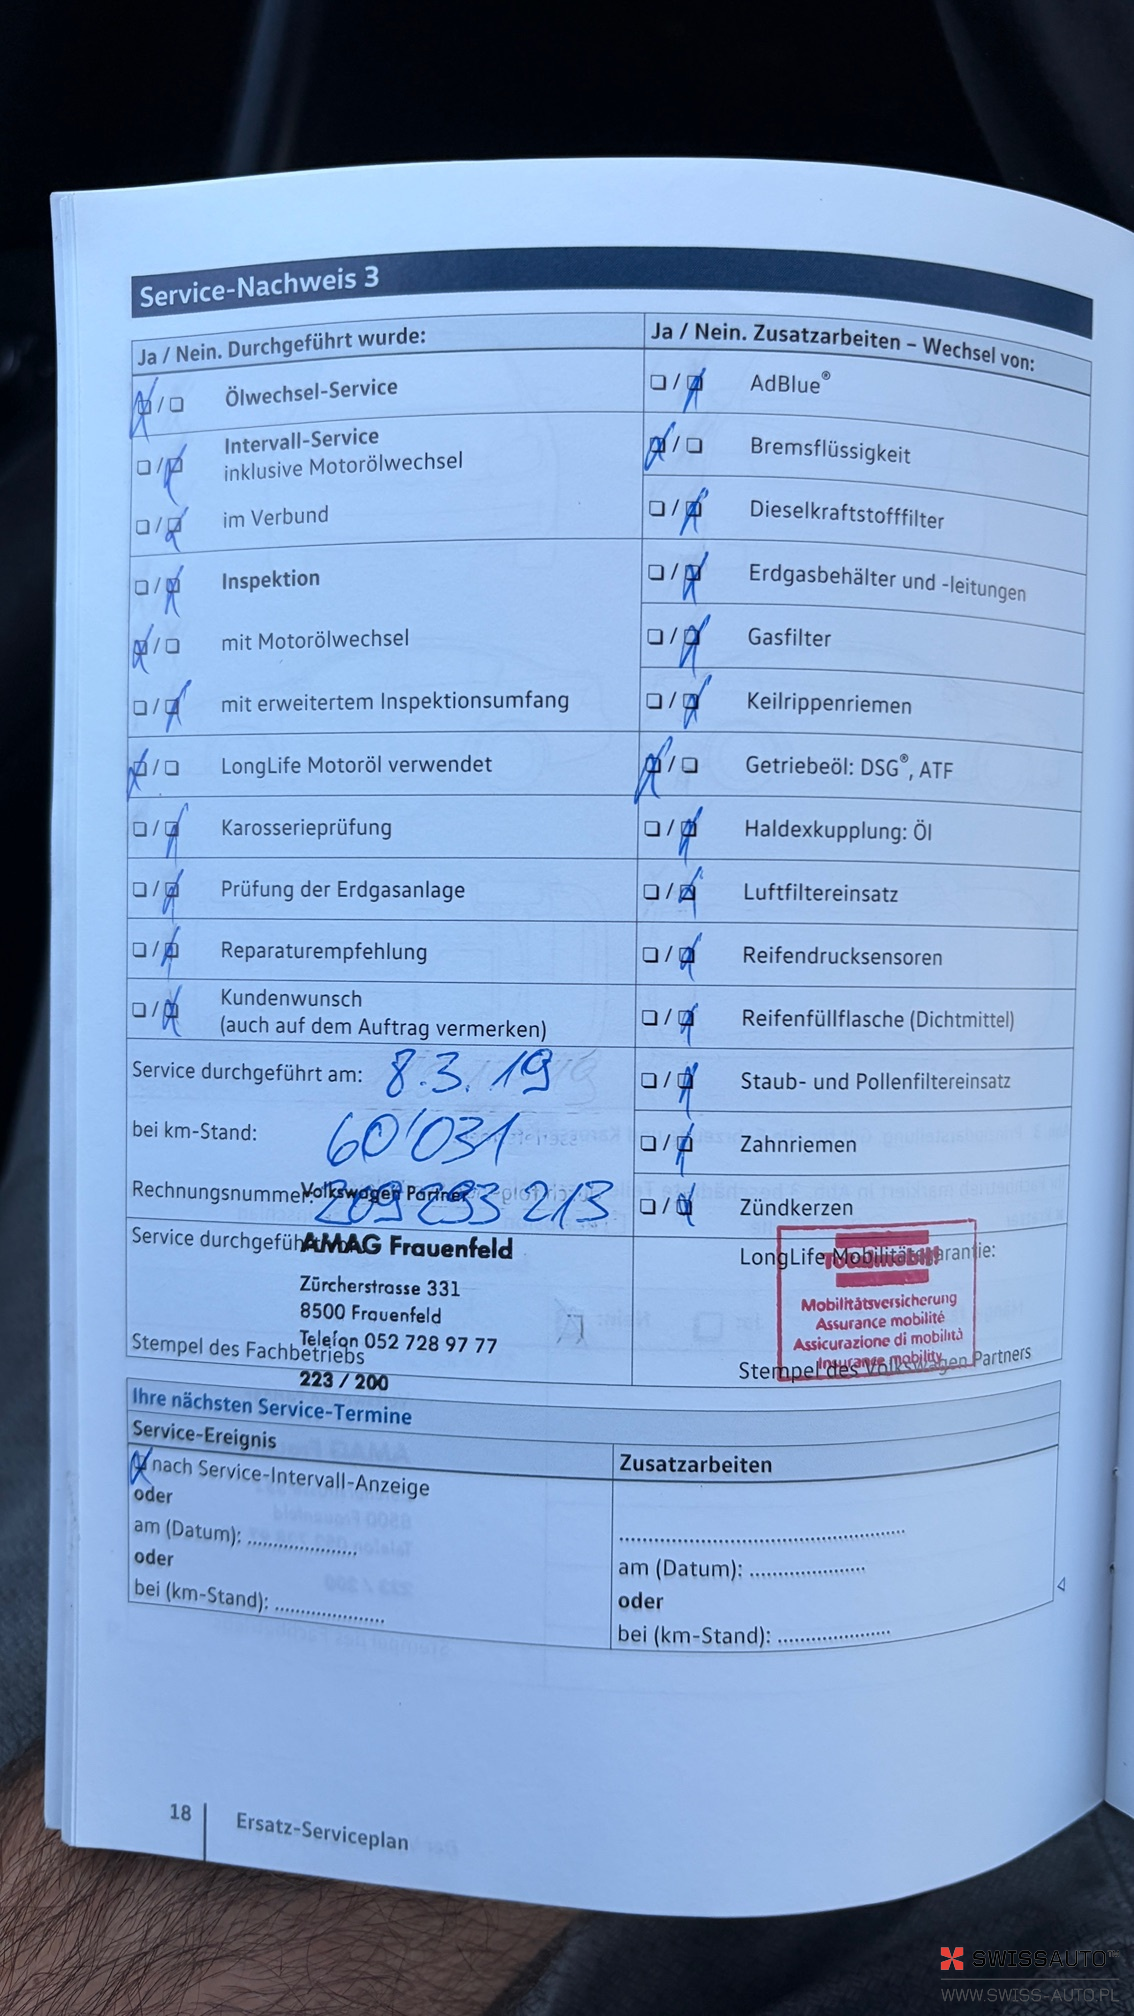 Service-Nachweis 3
Ja / Nein. Durchgeführt wurde:
❏ / ❏ Ölwechsel-Service
❏ / ❏ Intervall-Service
inklusive Motorölwechsel
❏ / ❏ im Verbund
❏ / ❏ Inspektion
❏ / ❏ mit Motorölwechsel
❏ / ❏ mit erweitertem Inspektionsumfang
❏ / ❏ LongLife Motoröl verwendet
❏ / ❏ Karosserieprüfung
❏ / ❏ Prüfung der Erdgasanlage
❏ / ❏ Reparaturempfehlung
❏ / ❏ Kundenwunsch
(auch auf dem Auftrag vermerken)
Service durchgeführt am: 8.3.19
bei km-Stand: 60'031
Rechnungsnummer: 209293213
Volkswagen Partner
Service durchgeführt
AMAG Frauenfeld
Zürcherstrasse 331
8500 Frauenfeld
Telefon 052 728 97 77
Stempel des Fachbetriebs
223 / 200
Ja / Nein. Zusatzarbeiten – Wechsel von:
❏ / ❏ AdBlue®
❏ / ❏ Bremsflüssigkeit
❏ / ❏ Dieselkraftstofffilter
❏ / ❏ Erdgasbehälter und -leitungen
❏ / ❏ Gasfilter
❏ / ❏ Keilrippenriemen
❏ / ❏ Getriebeöl: DSG®, ATF
❏ / ❏ Haldexkupplung: Öl
❏ / ❏ Luftfiltereinsatz
❏ / ❏ Reifendrucksensoren
❏ / ❏ Reifenfüllflasche (Dichtmittel)
❏ / ❏ Staub- und Pollenfiltereinsatz
❏ / ❏ Zahnriemen
❏ / ❏ Zündkerzen
LongLife Mobilitätsgarantie:
Mobilitätsversicherung
Assurance mobilité
Assicurazione di mobilità
Insurance mobility
Stempel des Volkswagen Partners
Ihre nächsten Service-Termine
Service-Ereignis
nach Service-Intervall-Anzeige
oder
am (Datum): ....................
oder
bei (km-Stand): ....................
Zusatzarbeiten
..................................................
am (Datum): ....................
oder
bei (km-Stand): ....................
18 Ersatz-Serviceplan
SWISSAUTO™
WWW.SWISS-AUTO.PL